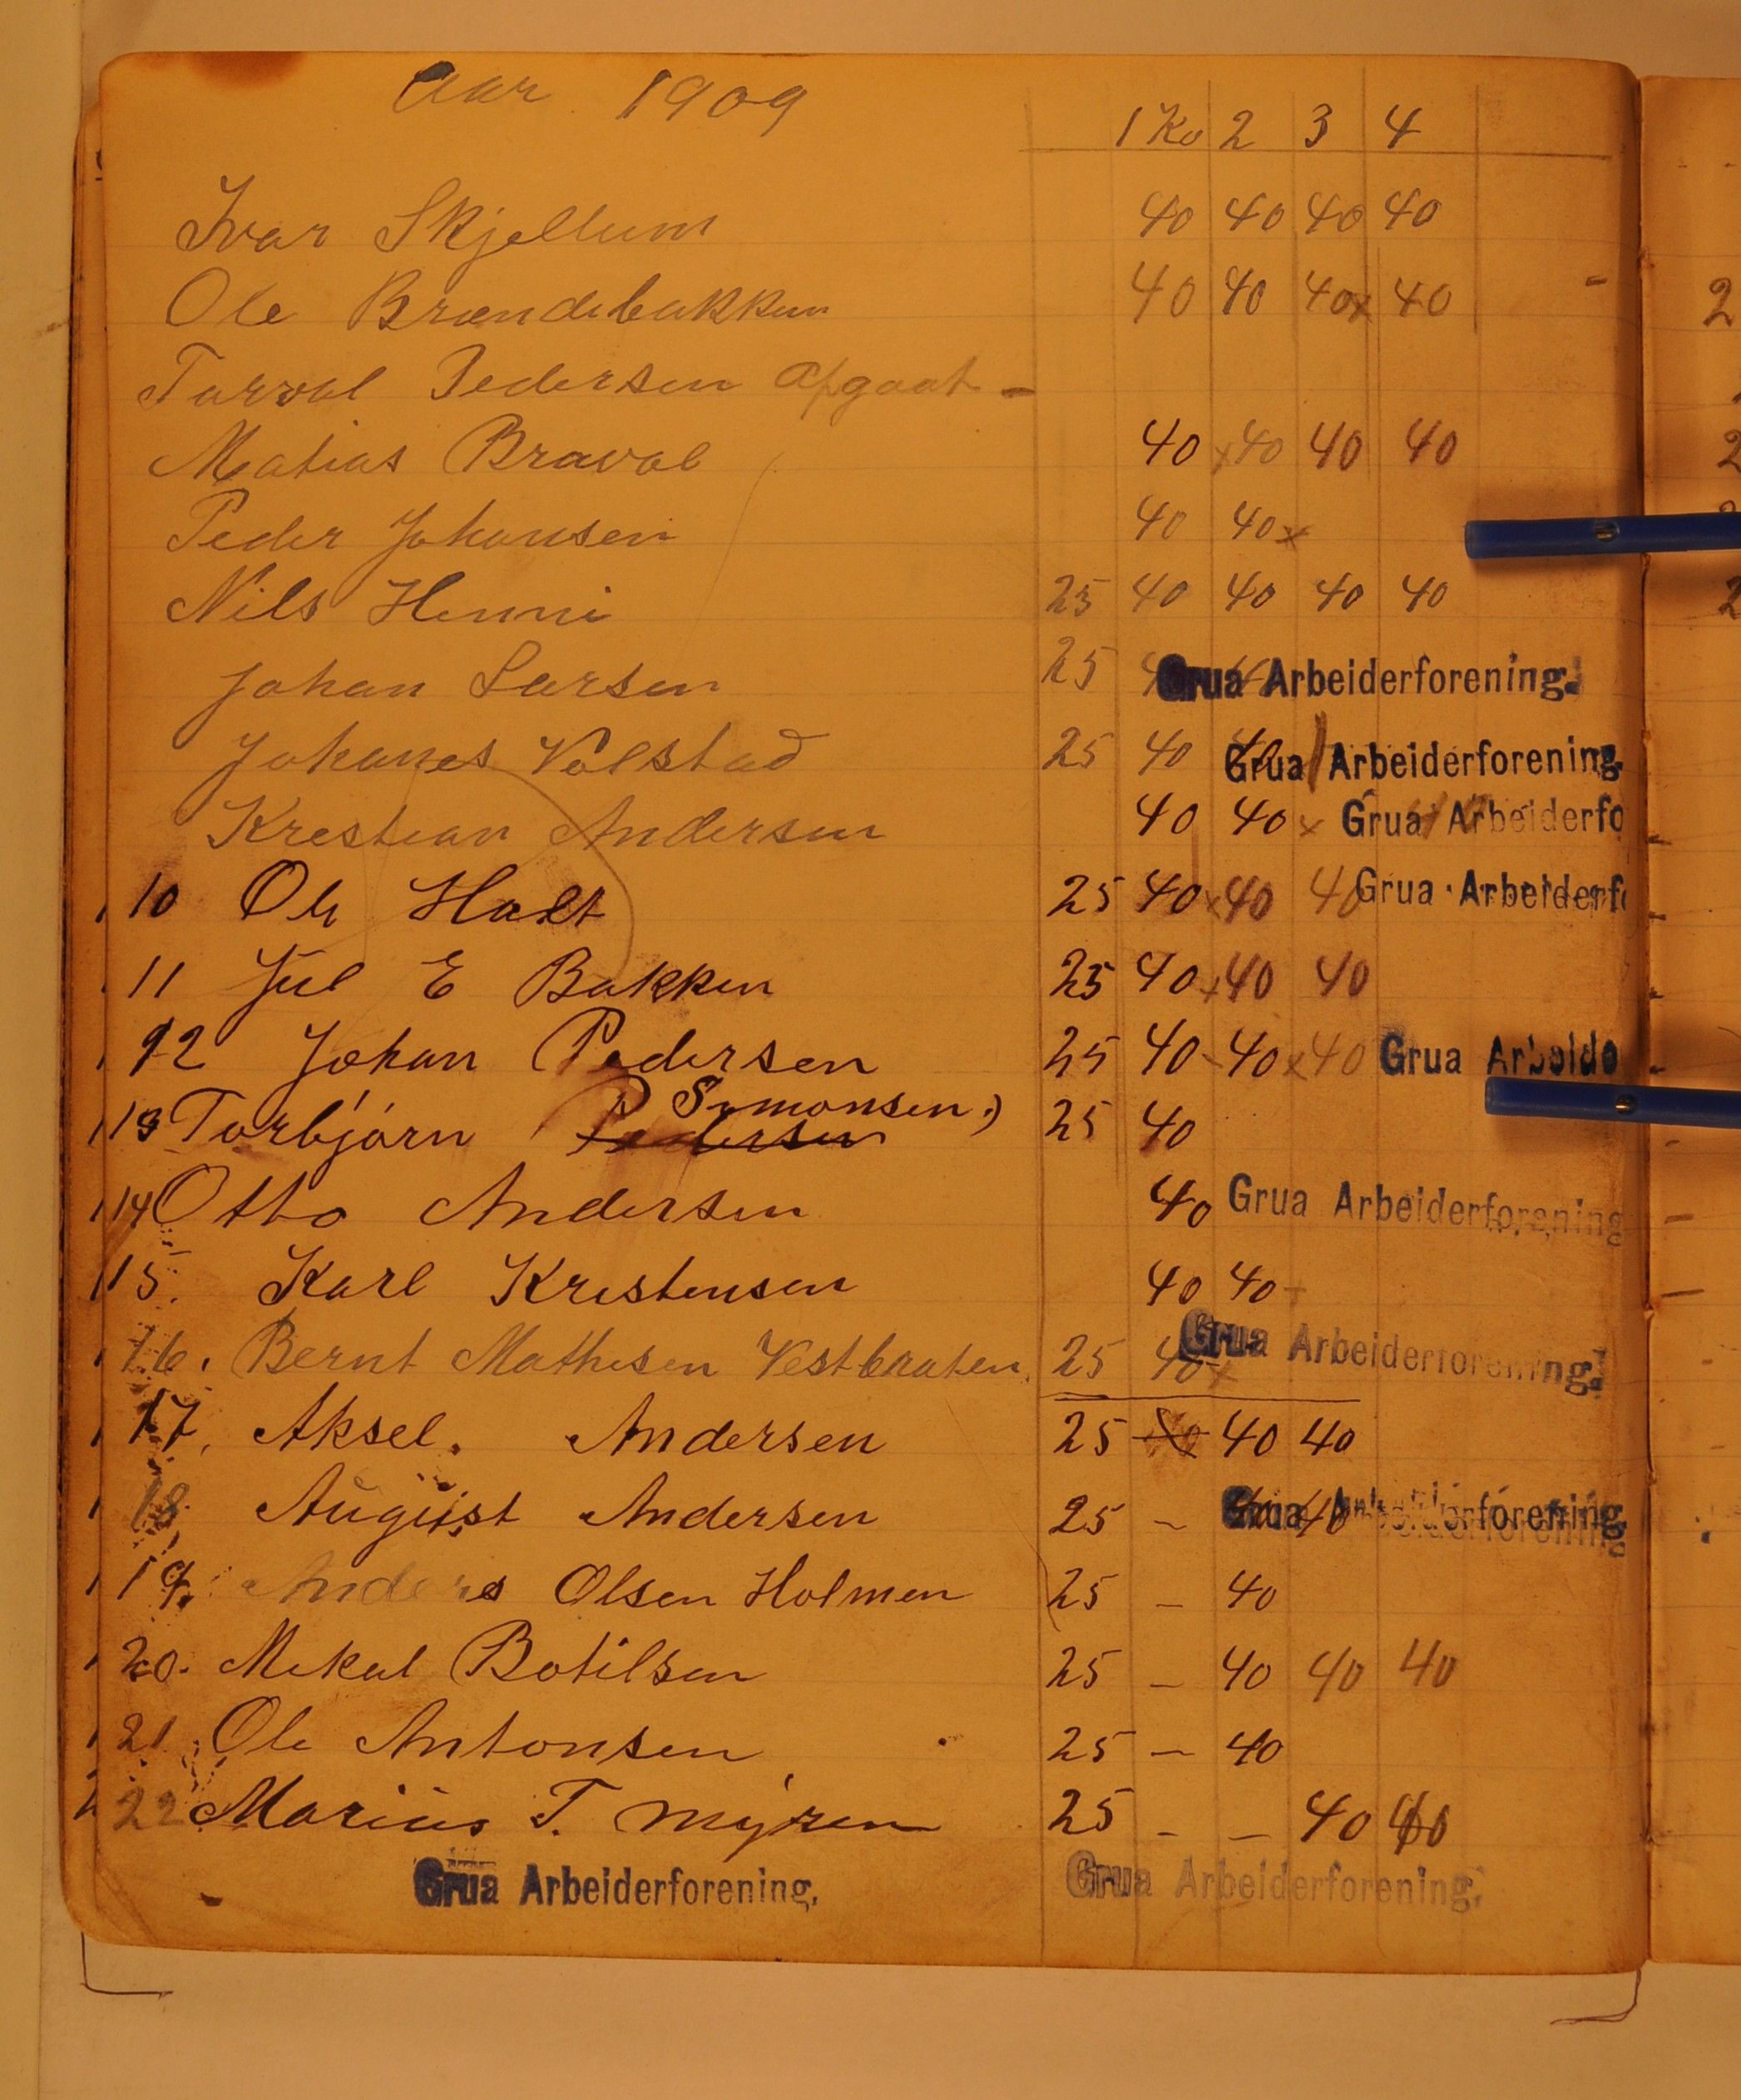 Aar 1909
1 Kv 2 3 4
Ivar Skjellum 40 40 40 40
Ole Brændebakken 40 40 40x 40
Torval Pedersen afgaat -
Matias Braval 40 x40 40 40
Peder Johansen 40 40x
Nils Henni 25 40 40 40 40
Johan Larsen 25 Grua Arbeiderforening.
Johanes Volstad 25 40 40 Grua Arbeiderforening.
Krestian Andersen 40 40x Grua Arbeiderfo
10 Ole Holt 25 40x40 40 Grua Arbeiderfo
11 Jul E Bakken 25 40x40 40
12 Johan Pedersen 25 40-40x40 Grua Arbeide
13 Torbjørn Pedersen P Symonsen.) 25 40
14 Otto Andersen 40 Grua Arbeiderforening
15. Karl Kristensen 40 40-
16. Bernt Mathisen Vestbraaten. 25 40x Grua Arbeiderforening.
17. Aksel. Andersen 25 40 40 40
18 August Andersen 25 - 40 40 Grua Arbeiderforening.
19. Anders Olsen Holmen 25 - 40
20. Mekal Botilsen 25 - 40 40 40
21 Ole Antonsen 25 - 40
22 Marius T. Myren 25 - - 40 40
Grua Arbeiderforening. Grua Arbeiderforening.
2
2
2